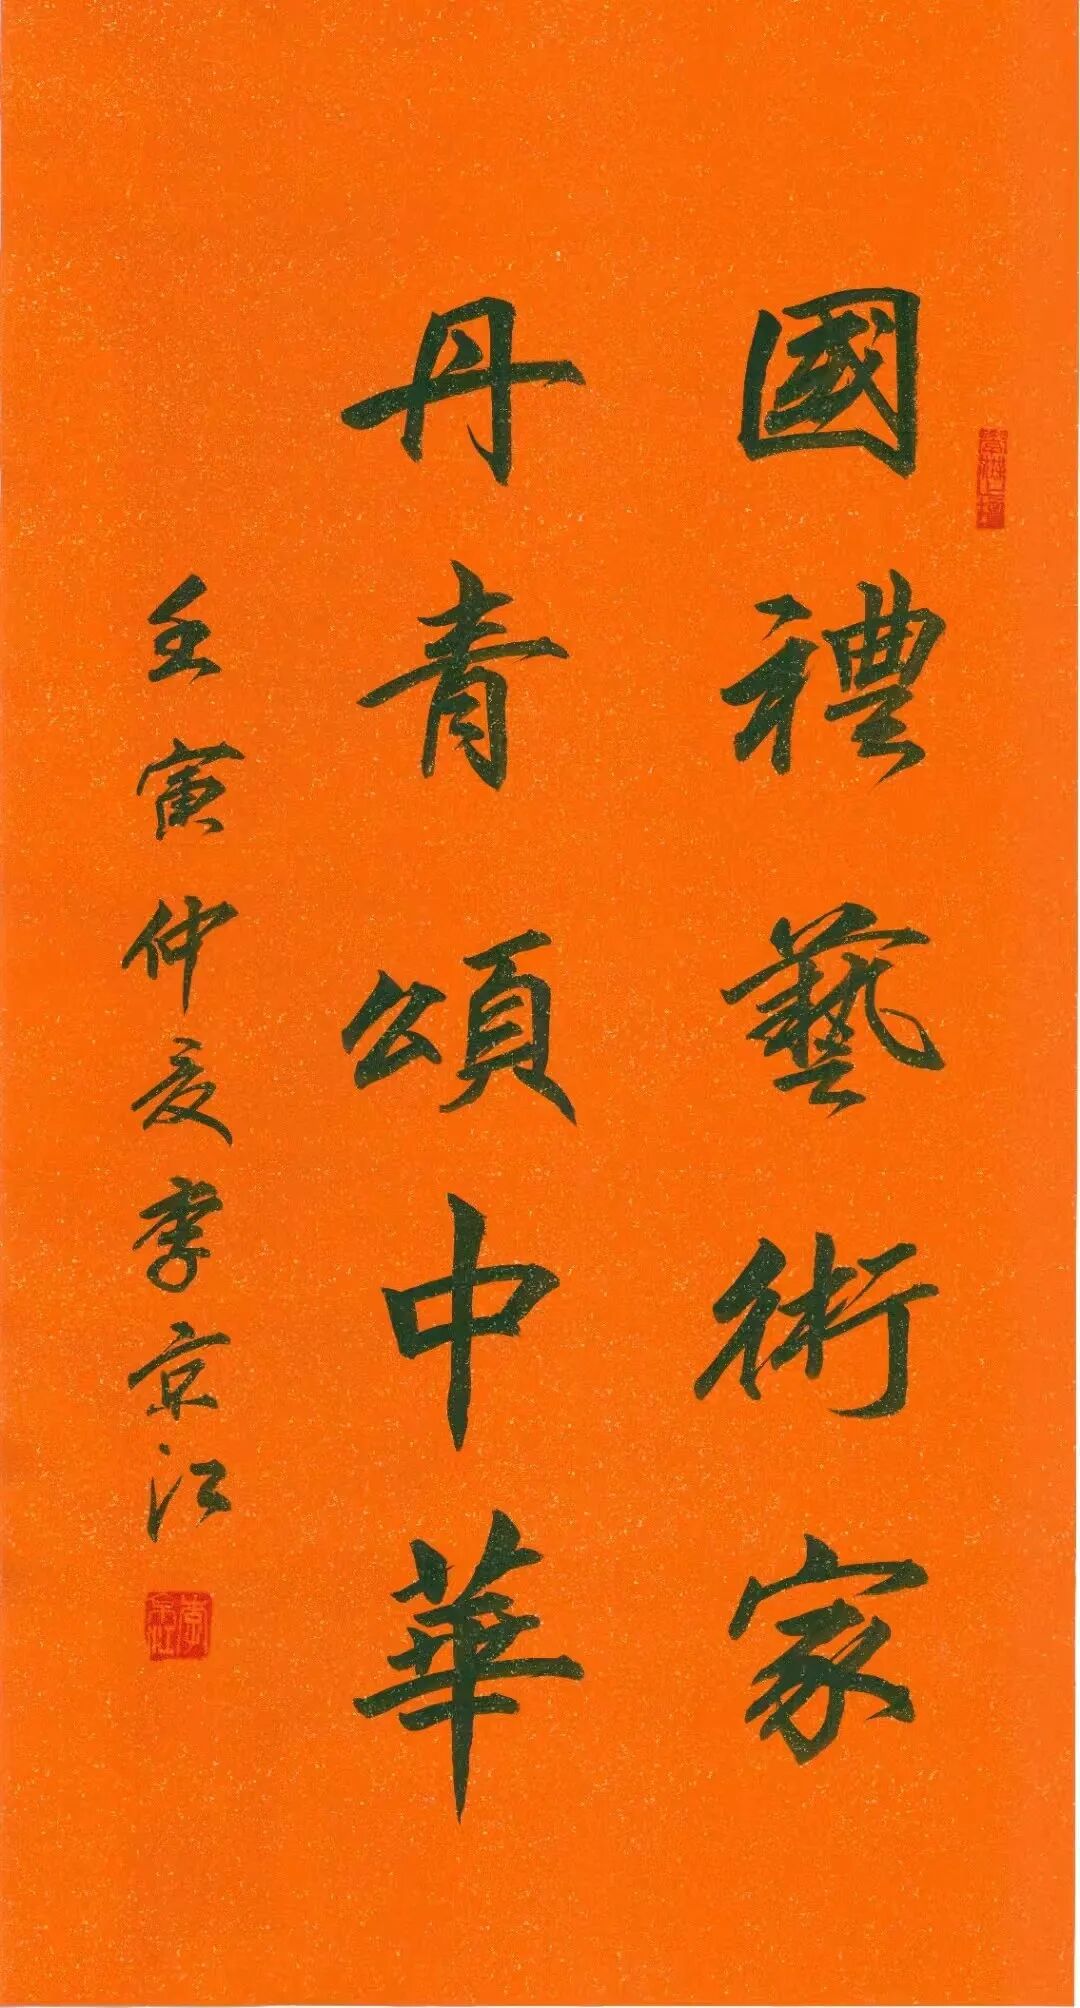 國禮藝術家
丹青頌中華
壬寅仲夏李京江